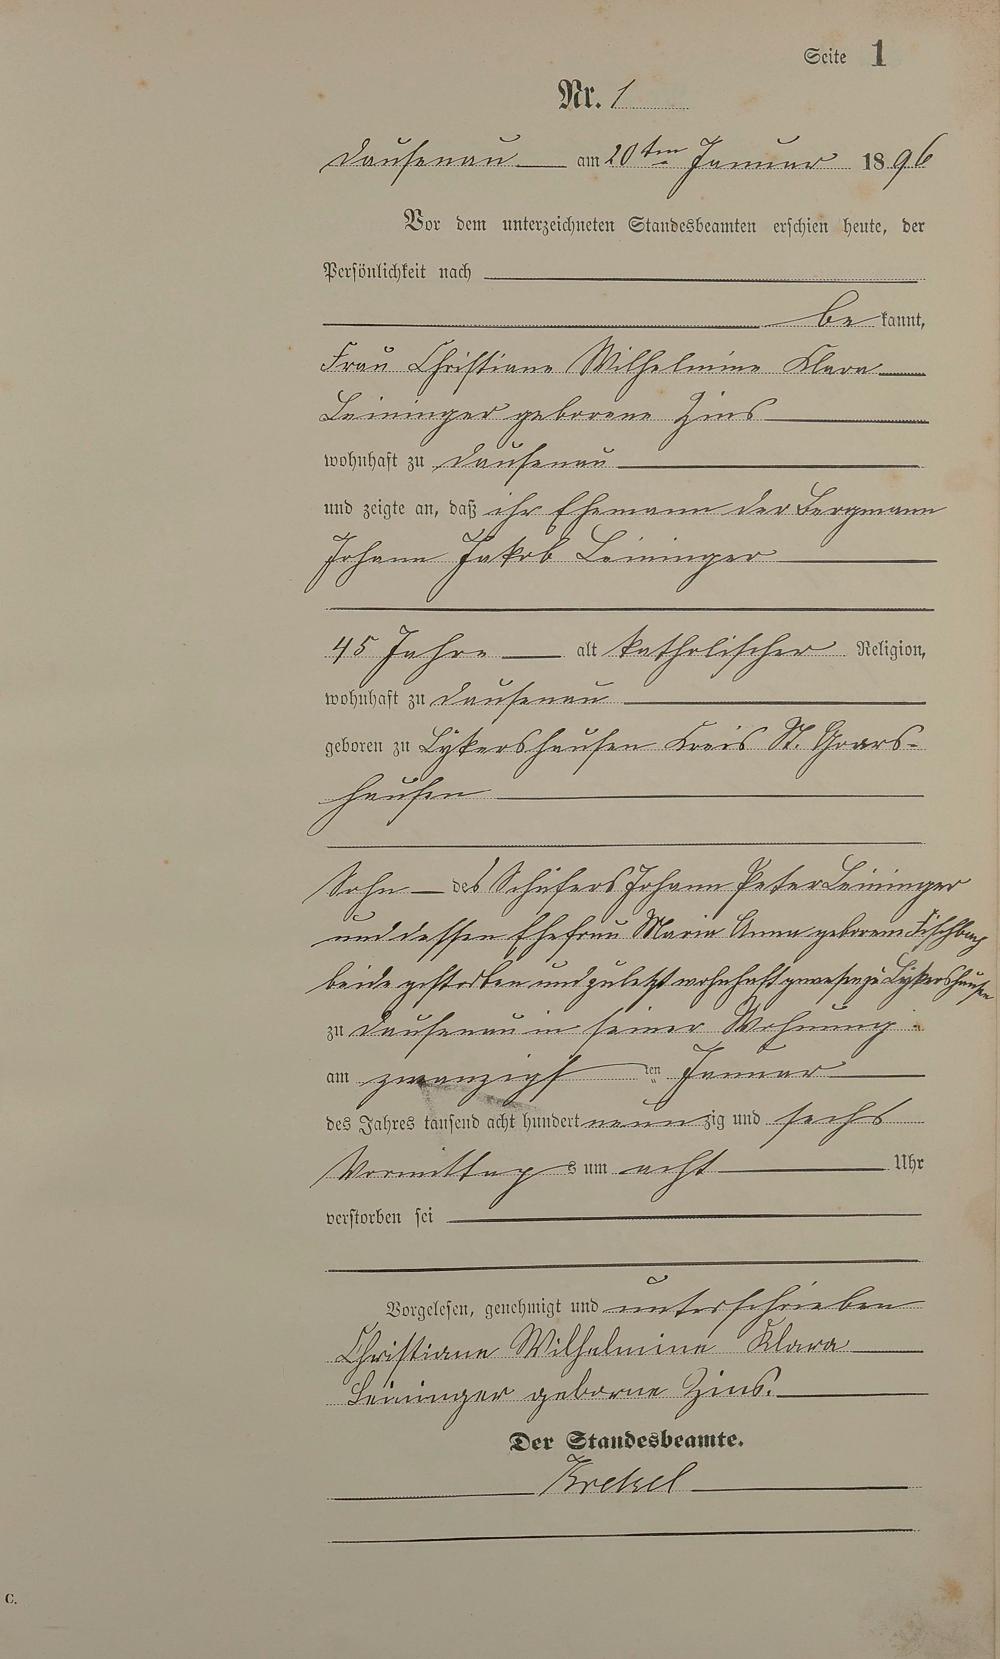 Seite 1
Nr. 1
Dausenau am 20ten Januar 1896
Vor dem unterzeichneten Standesbeamten erschien heute, der
Persönlichkeit nach
be kannt,
Frau Christiane Wilhelmine Klara
Leininger geborene Zins
wohnhaft zu Dausenau
und zeigte an, daß ihr Ehemann der Bergmann
Johann Jakob Leininger
45 Jahre alt katholischer Religion,
wohnhaft zu Dausenau
geboren zu Lykershausen Kreis St. Goars-
hausen
Sohn des Schäfers Johann Peter Leininger
und dessen Ehefrau Maria Anna geborene Fischbach
beide gestorben und zuletzt wohnhaft gewesen zu Lykershausen
zu Dausenau in seiner Wohnung
am zwanzigsten Januar
des Jahres tausend acht hundert neunzig und sechs
Vormittags um acht Uhr
verstorben sei
Vorgelesen, genehmigt und unterschrieben
Christiane Wilhelmine Klara
Leininger geborne Zins.
Der Standesbeamte.
C.